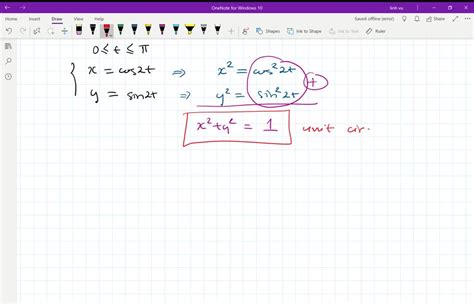 OneNote for Windows 10
linh vu
Home Insert Draw View Help
Saved offline (error) Share
Shapes Ink to Shape Ink to Text Math
0 ≤ t ≤ π
x = cos2t ⇒ x² = cos²2t
y = sin2t ⇒ y² = sin²2t +
x² + y² = 1 unit cir.